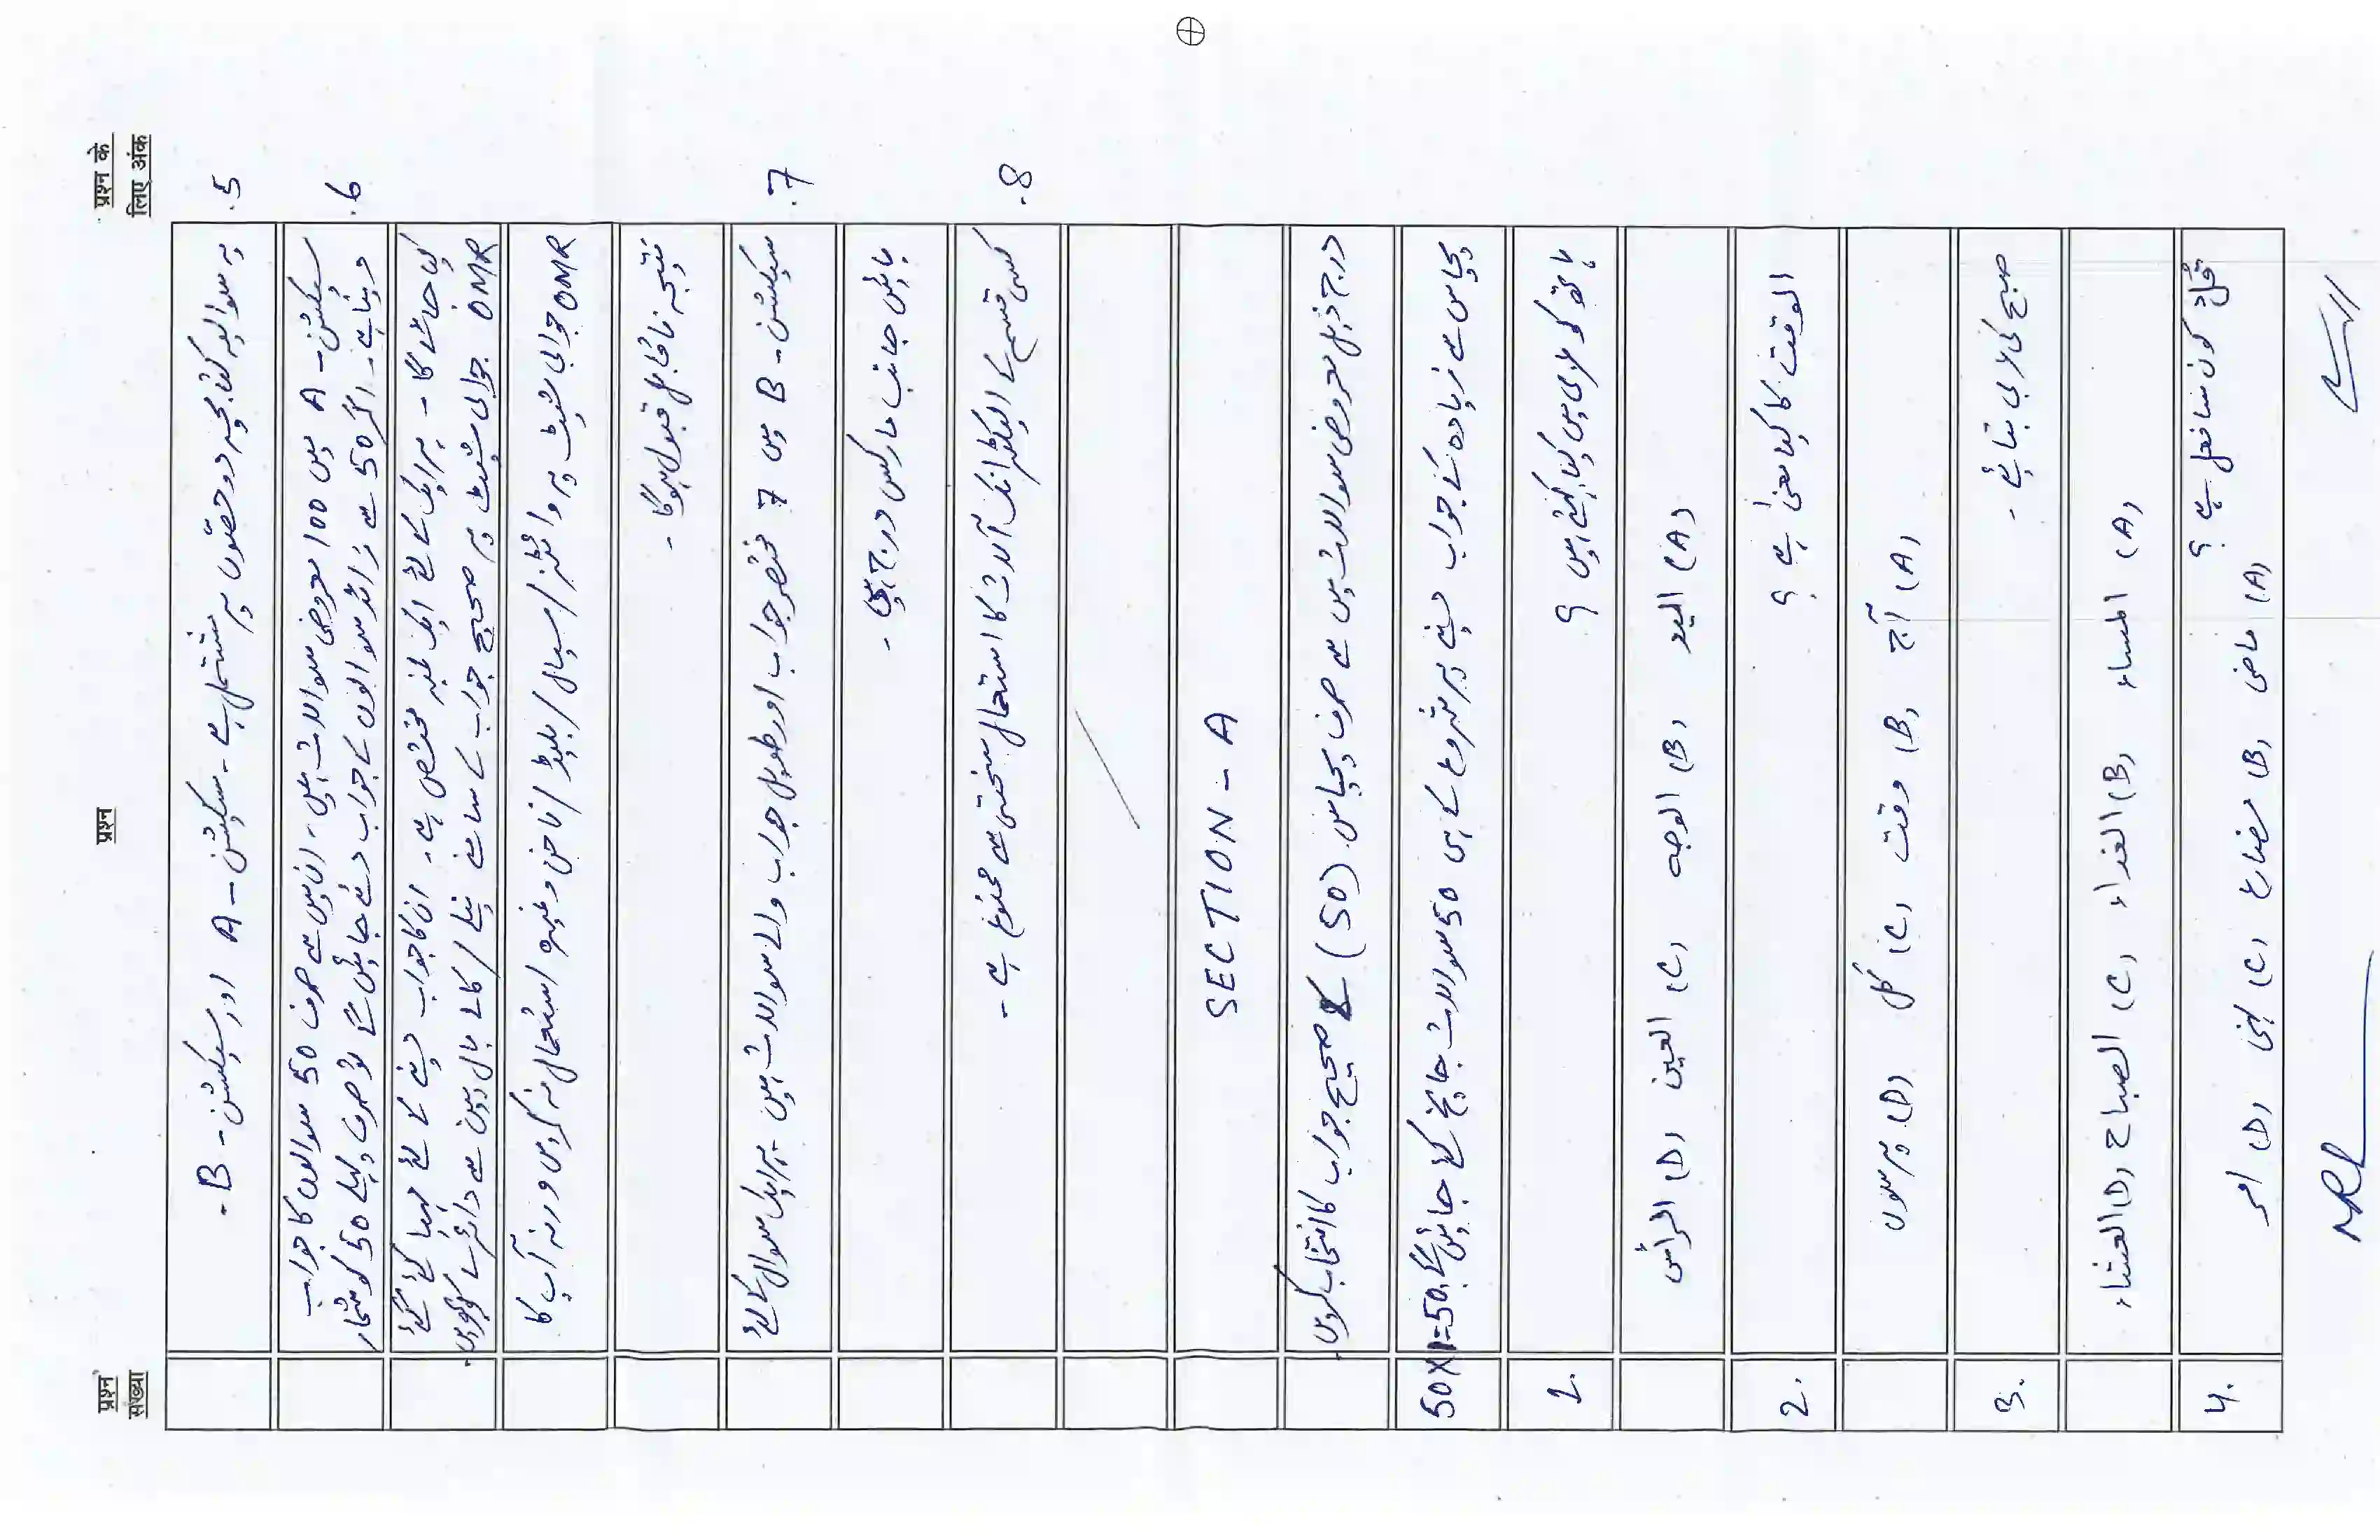 प्रश्न संख्या
प्रश्न
प्रश्न के लिए अंक
5. یہ سوالیہ کتابچہ دو حصّوں پر مشتمل ہے۔ سیکشن - A اور سیکشن - B -
6. سیکشن - A میں 100 معروضی سوالات ہیں۔ ان میں سے صرف 50 سوالوں کا جواب
دینا ہے۔ اگر 50 سے زائد سوالوں کے جواب دئے جائیں گے تو صرف پہلے 50 کو شمار
کیا جائے گا۔ ہر ایک کے لئے ایک نمبر مختص ہے۔ ان کا جواب دینے کے لئے مہیا کئے گئے
OMR جوابی شیٹ پر صحیح جواب کے سامنے نیلے / کالے بال پین سے دائرے کو بھریں۔
OMR جوابی شیٹ پر وائٹنر / سیال / بلیڈ / ناخن وغیرہ استعمال نہ کریں ورنہ آپ کا
نتیجہ ناقابل قبول ہوگا -
7. سیکشن - B میں 7 مختصر جواب اور طویل جواب والے سوالات ہیں۔ ہر ایک سوال کے لئے
بائیں جانب مارکس درج ہیں -
8. کسی قسم کے الیکٹرانک آلات کا استعمال سختی سے ممنوع ہے -
SECTION - A
درج ذیل معروضی سوالات میں سے صرف پچاس (50) کے صحیح جواب کا انتخاب کریں۔
پچاس سے زیادہ کے جواب دینے پر شروع کے ہی 50 سوالات جانچ کئے جائیں گے۔ 50X1=50
1. ہاتھ کو عربی میں کیا کہتے ہیں ؟
(A) الید (B) الوجہ (C) العین (D) الرأس
2. الوقت کا کیا معنیٰ ہے ؟
(A) آج (B) وقت (C) کل (D) پرسوں
3. صبح کی عربی بتائیے -
(A) المساء (B) الغداء (C) الصباح (D) العشاء
4. قُل کون سا فعل ہے ؟
(A) ماضی (B) مضارع (C) نہی (D) امر